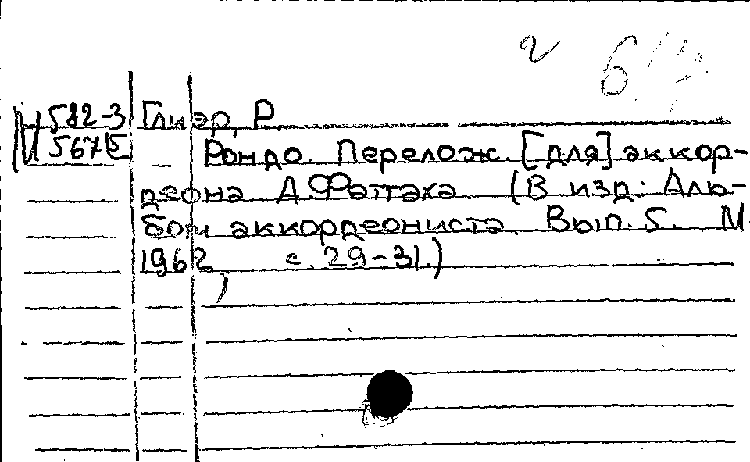 М 582-3 Глиэр, Р.
5675 Рондо. Перелож. [для] аккор-
деона А. Фаттаха (В изд.: Аль-
бом аккордеониста. Вып. 5. М.
1962, с. 29-31.)